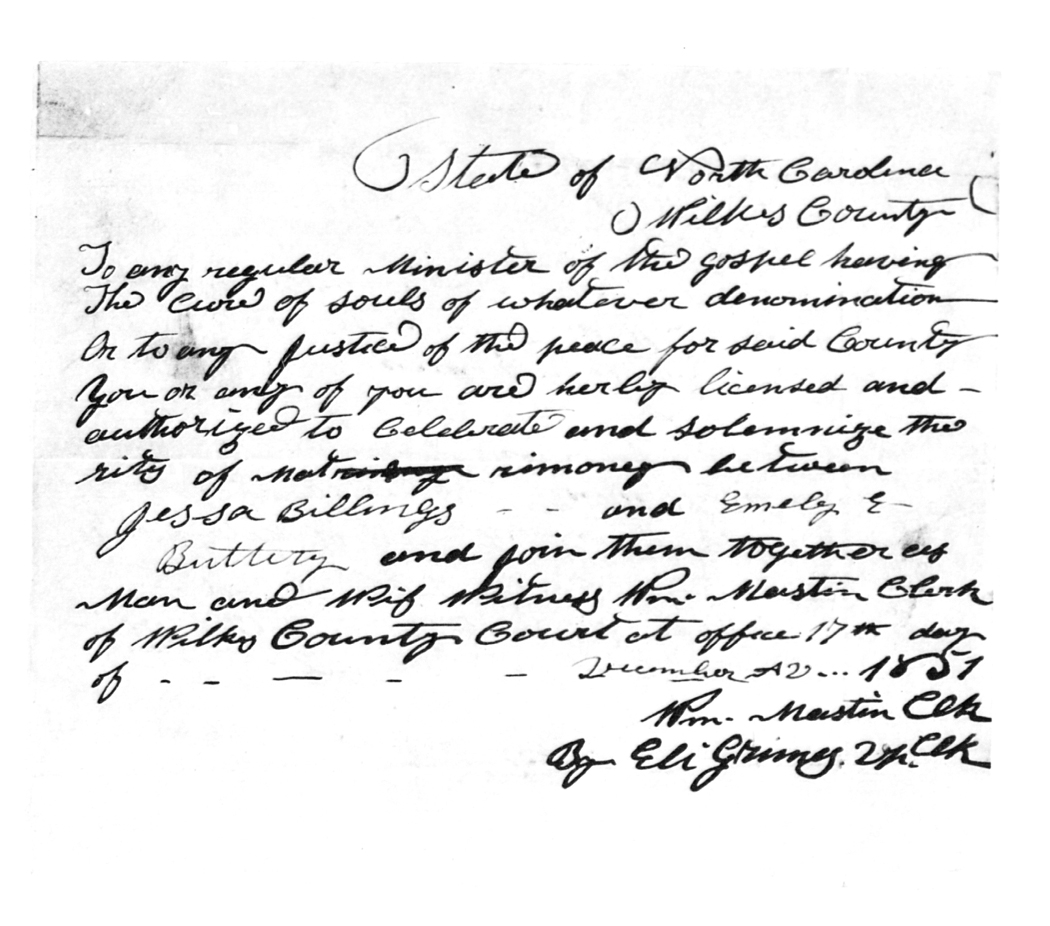 State of North Carolina
Wilkes County
To any regular Minister of the gospel having
The Cure of souls of whatever denomination
Or to any Justice of the peace for said County
You or any of you are herby licensed and -
authorized to Celebrate and solemnize the
rites of Mat rimoney between
Jessa Billings - - and Emely E -
Buttery and join them together as
Man and Wif Witness Wm. Mastin Clerk
of Wilkes County Court at office 17th day
of - - — - - December AD... 1851
Wm. Mastin Clk
By Eli Grimes. Dp. Clk